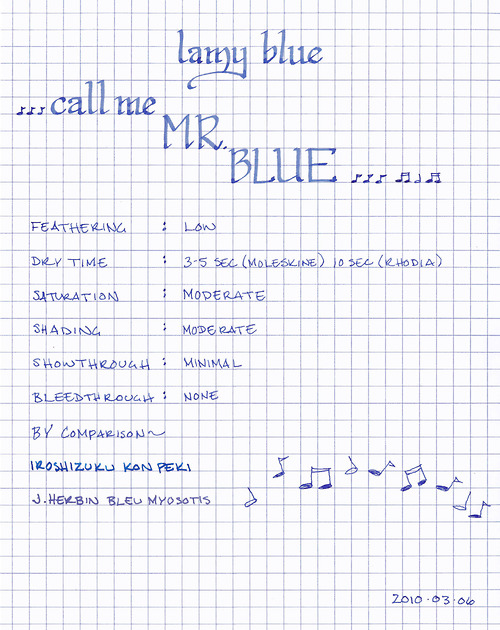 lamy blue
call me
MR.
BLUE
FEATHERING : LOW
DRY TIME : 3-5 SEC (MOLESKINE) 10 SEC (RHODIA)
SATURATION : MODERATE
SHADING : MODERATE
SHOWTHROUGH : MINIMAL
BLEEDTHROUGH : NONE
BY COMPARISON~
IROSHIZUKU KON PEKI
J. HERBIN BLEU MYOSOTIS
2010·03·06